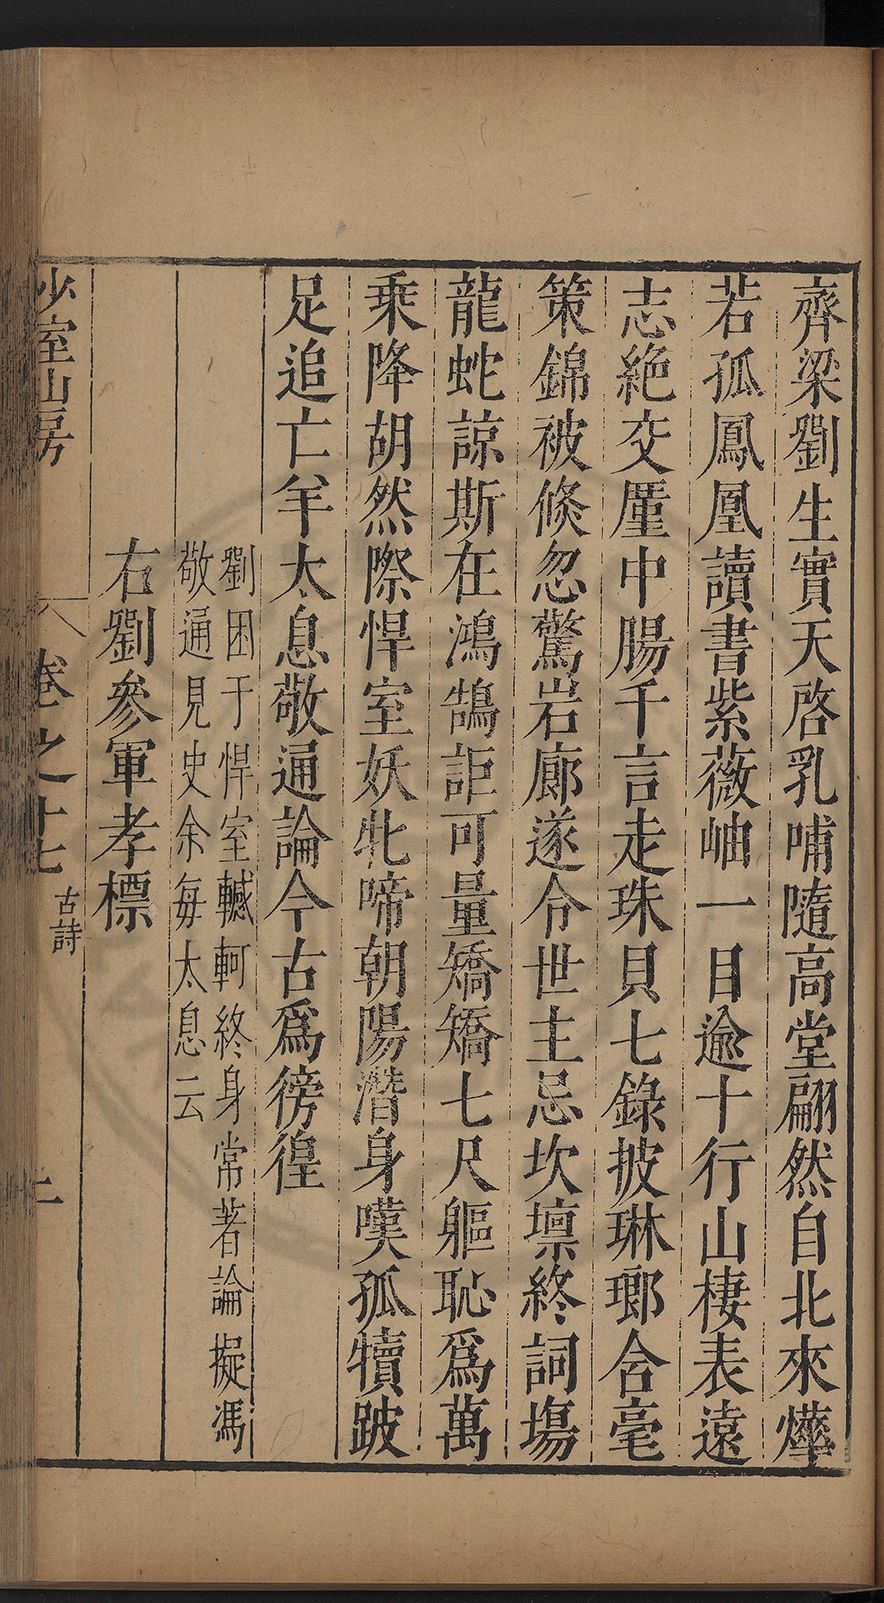 齊梁劉生實天啓乳哺隨高堂翩然自北來燁
若孤鳳凰讀書紫薇岫一目逾十行山棲表遠
志絶交厪中腸千言走珠貝七錄披琳瑯含毫
策錦被倏忽驚岩廊遂令世主忌坎壈終詞塲
龍蛇諒斯在鴻鵠詎可量矯矯七尺軀恥爲萬
乘降胡然際悍室妖牝啼朝陽潛身嘆孤犢跛
足追亡羊太息敬通論今古爲徬徨
劉困于悍室轗軻終身常著論擬馮
敬通見史余每太息云
右劉參軍孝標
少室山房
卷之十七
古詩
上